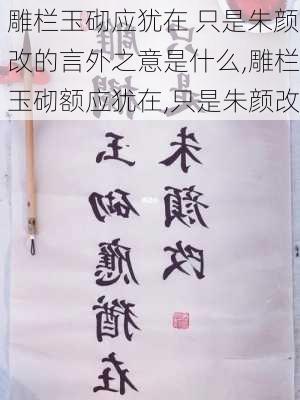 雕栏玉砌应犹在,只是朱颜
改的言外之意是什么,雕栏
玉砌额应犹在,只是朱颜改
雕欄玉砌應猶在
只是朱顔改